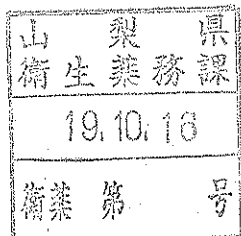 山梨県
衛生薬務課
19.10.16
衛薬第 号